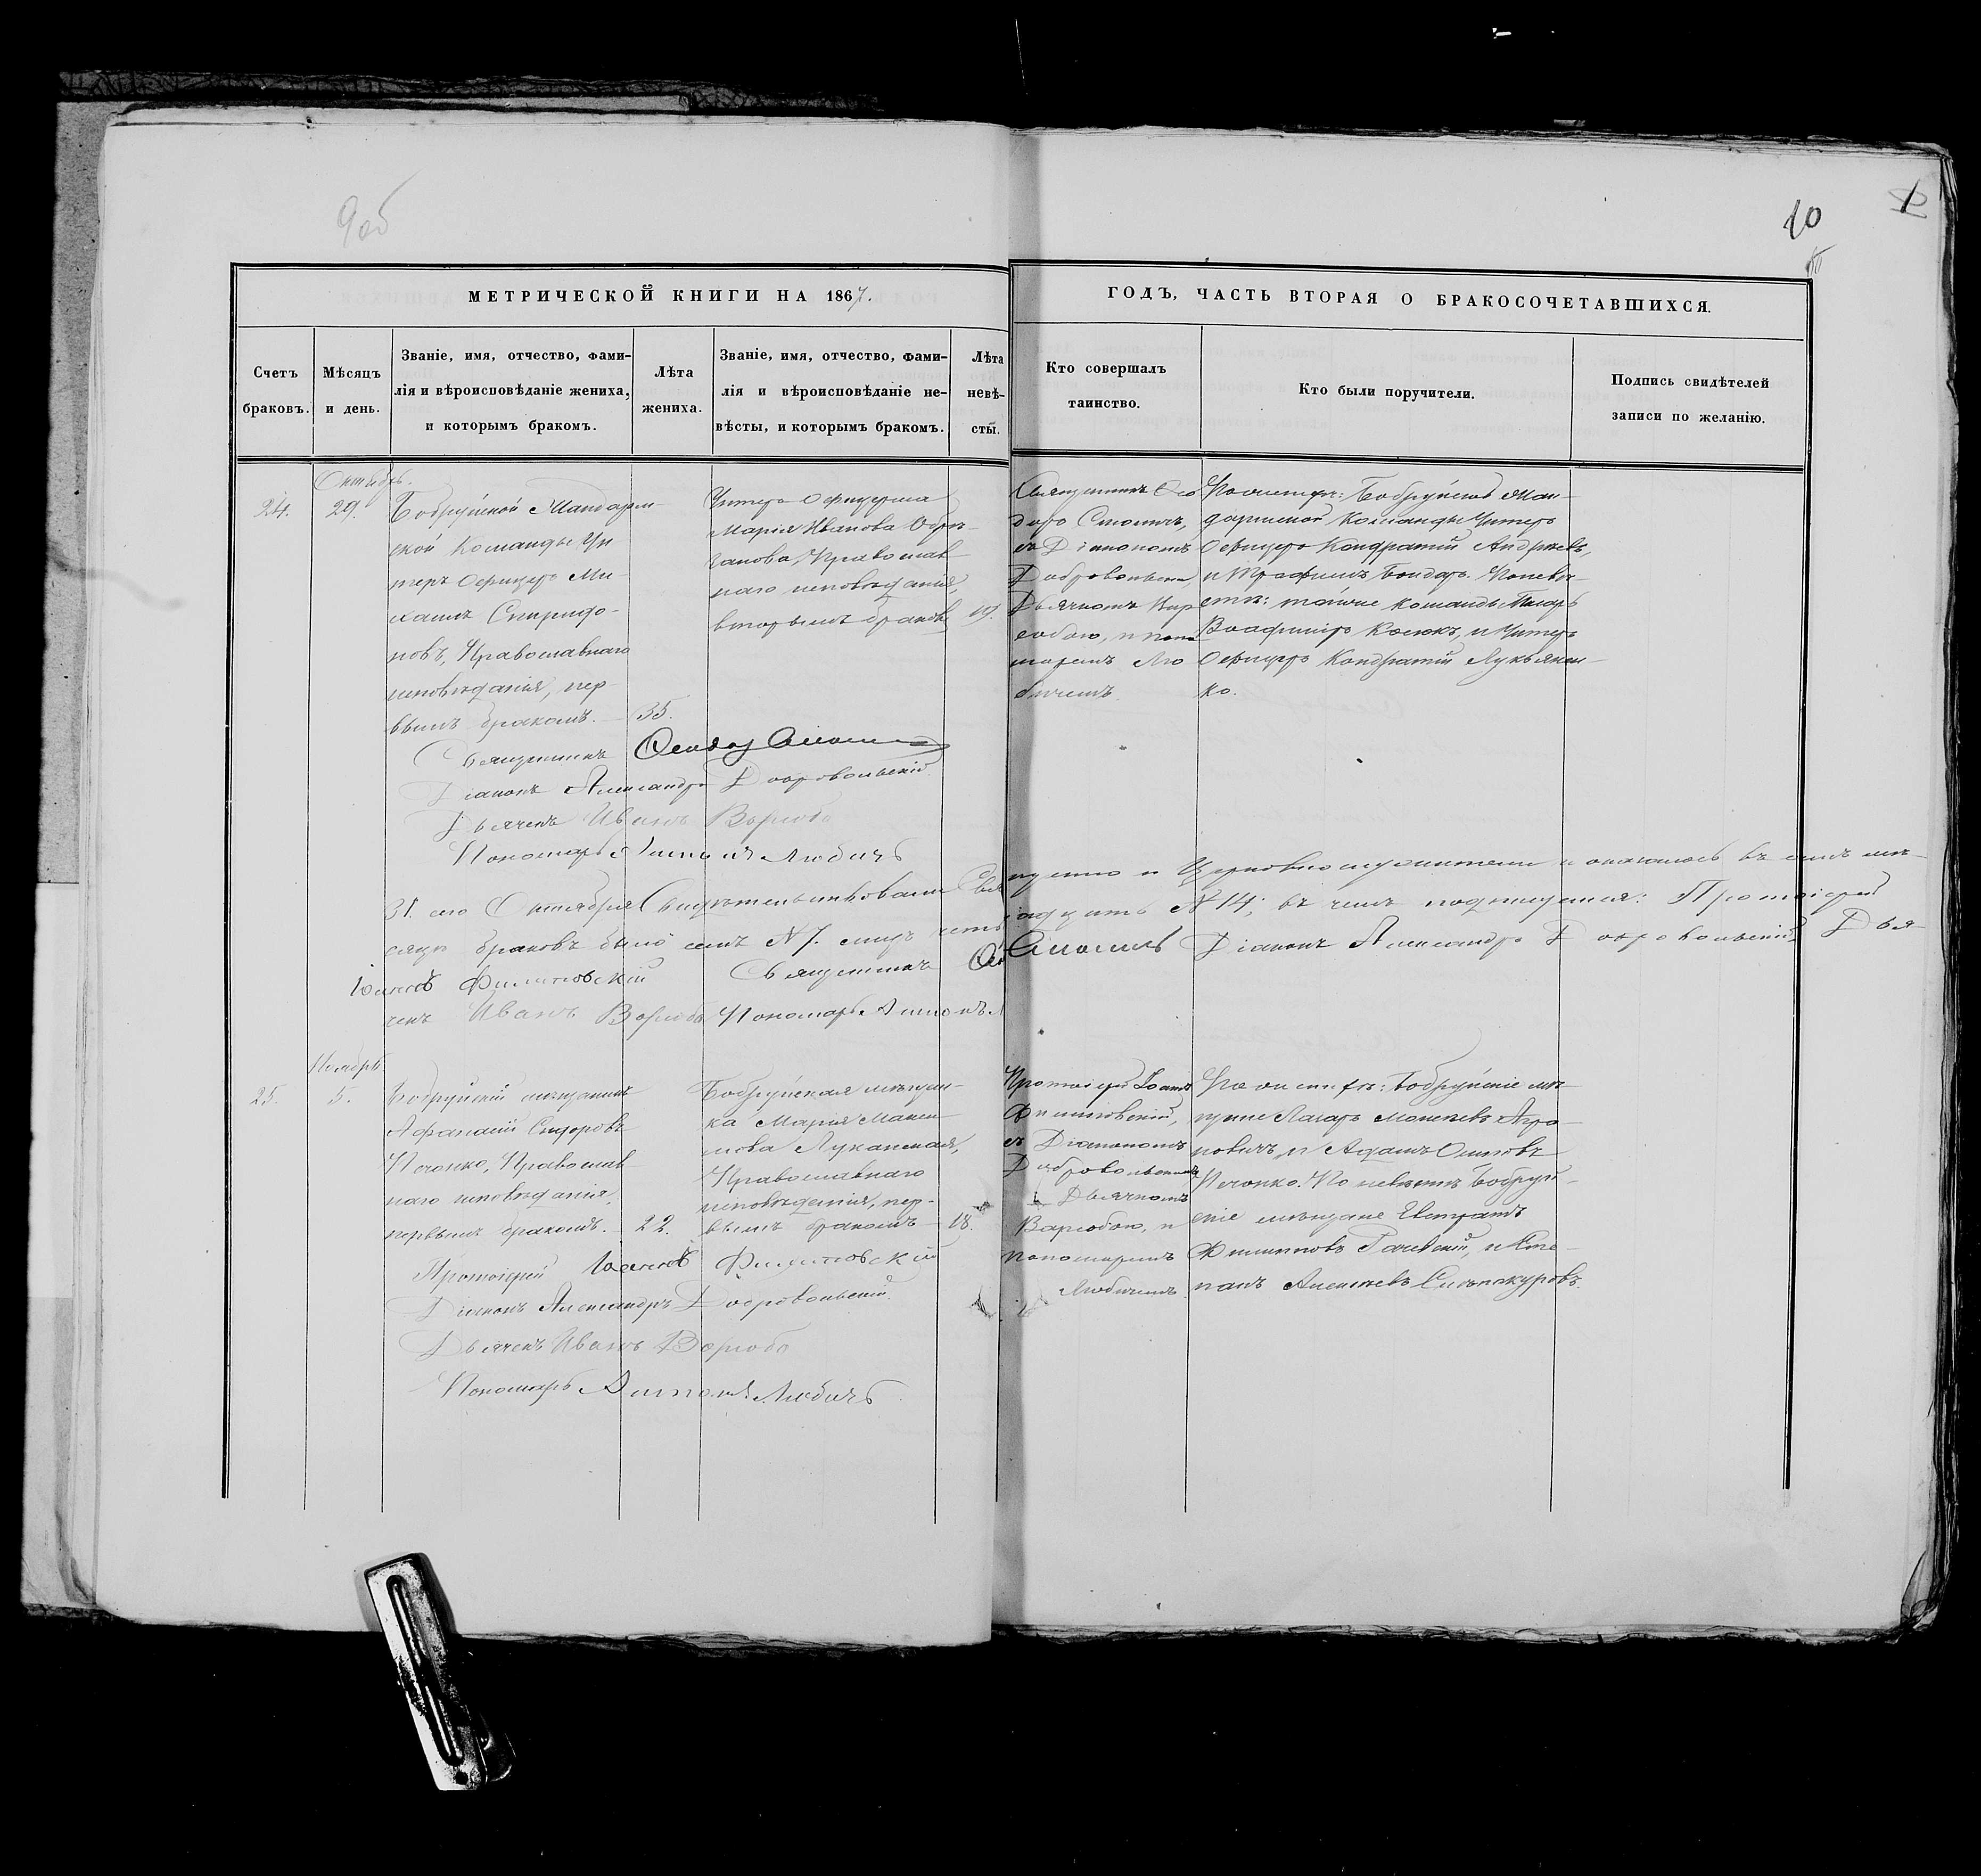 9 об
10
МЕТРИЧЕСКОЙ КНИГИ НА 1867.
ГОДЪ, ЧАСТЬ ВТОРАЯ О БРАКОСОЧЕТАВШИХСЯ.
Счетъ
браковъ.
Мѣсяцъ
и день.
Званіе, имя, отчество, фами-
лія и вѣроисповѣданіе жениха,
и которымъ бракомъ.
Лѣта
жениха.
Званіе, имя, отчество, фами-
лія и вѣроисповѣданіе не-
вѣсты, и которымъ бракомъ.
Лѣта
невѣ-
сты.
Кто совершалъ
таинство.
Кто были поручители.
Подпись свидѣтелей
записи по желанію.
24.
Октябрь.
29.
Бобруйской Жандарм-
ской Команды Ун
теръ Офицеръ Ми-
хаилъ Спиридо-
новъ, Православнаго
исповѣданія, пер-
вымъ бракомъ.
35.
Унтеръ Офицерша
Марія Иванова
Православ
наго исповѣданія,
вторымъ бракомъ,
Священникъ Ѳео
доръ Смоличъ,
съ Діакономъ
Добровольски
Дьячкомъ Вар
собою, и поно
маремъ Лю
бичемъ
По женихѣ: Бобруйской Жан-
дармской Команды Унтеръ
Офицеръ Кондратій Андреевъ,
и Трофимъ Бондарь. По невѣ-
стѣ: той же команды Писарь
Владиміръ Касюкъ, и Унтеръ
Офицеръ Кондратій Лукьянен-
ко.
Священникъ
Діаконъ Александръ Добровольскій
Дьячекъ Иванъ
Пономарь Антоній Любичъ
31. сего Октября Свидѣтельствовали Свя
щенно и Церковнослужители и оказалось въ семъ мѣ-
сяцѣ браковъ было семь № 7. лицъ четы
рнадцать № 14; въ чемъ подписуемся: Протоіерей
Іоаннъ Филиповскій Священникъ
Діаконъ Александръ Добровольскій, Дья-
чекъ Иванъ Пономарь Антоній
25.
Ноябрь
5.
Бобруйскій мѣщанинъ
Афанасій Сидоровъ
Печонко, Православ
наго исповѣданія,
первымъ бракомъ.
22.
Бобруйская мѣщан-
ка Марія Макси
мова Луканская,
Православнаго
исповѣданія, пер-
вымъ бракомъ
18.
Протоіерей Іоаннъ
Филиповскій,
съ Діакономъ
Добровольскимъ
Дьячкомъ
и
пономаремъ
Любичемъ
По женихѣ: Бобруйскіе мѣ-
щане Лазарь
новичъ, и Адамъ Осиповъ
Печонко. По невѣстѣ: Бобруй-
скіе мѣщане Евстратъ
Филиповъ и Сте-
панъ Алексѣевъ
Протоіерей Іоаннъ Филиповскій
Діаконъ Александръ Добровольскій.
Дьячекъ Иванъ
Пономарь Антоній Любичъ